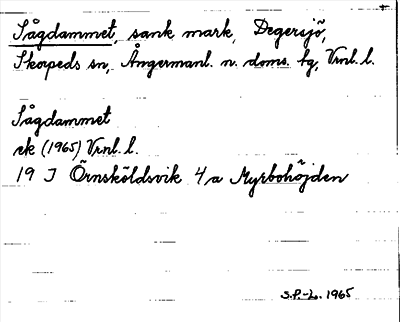 Sågdammet, sank mark, Degersjö,
Skorpeds sn, Ångermanl. n. doms. tg, Vrnl. l.
Sågdammet
ek (1965) Vrnl. l.
19 J Örnsköldsvik 4a Myrbohöjden
S.P.-L. 1965